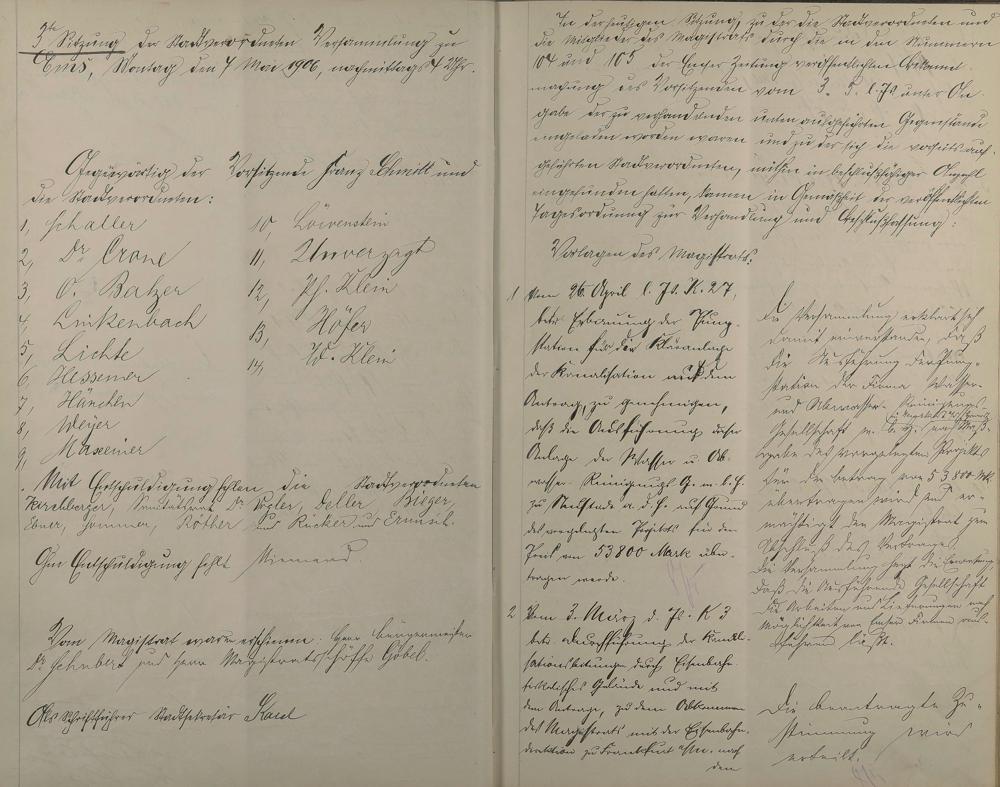 3te Sitzung der Stadtverordneten Versammlung zu
Ems, Montag den 7 Mai 1906, nachmittags 4 Uhr.
Gegenwärtig der Vorsitzende Franz Schmitt und
die Stadtverordneten:
1, Schaller
2, Dr Crone
3, O. Balzer
4, Linkenbach
5, Lichte
6, Hessemer
7, Hanchen
8, Weyer
9, Maxeiner
10, Löwenstein
11, Unverzagt
12, Ph. Klein
13, Höfer
14, W. Klein
Mit Entschuldigung fehlen die Stadtverordneten
Kirchberger, Sanitätsrat Dr Vogler, Deller, Bieger,
Ebner, Sommer, Röther und Rücker und Ermisch.
Ohne Entschuldigung fehlt Niemand.
Vom Magistrat waren erschienen: Herr Bürgermeister
Dr Schubert und Herr Magistratsschöffe Göbel.
Als Schriftführer Stadtsekretär Kaul
In der heutigen Sitzung, zu der die Stadtverordneten und
die Mitglieder des Magistrats durch die in den Nummern
104 und 105 der Emser Zeitung veröffentlichten Bekannt
machung des Vorsitzenden vom 3. 5. l. Js unter An
gabe der zu verhandelnden unten aufgeführten Gegenstände
eingeladen worden waren und zu der sich die vorseits auf-
geführten Stadtverordneten, mithin in beschlußfähiger Anzahl
eingefunden hatten, kamen in Gemäßheit der veröffentlichten
Tagesordnung zur Verhandlung und Beschlußfassung:
Vorlagen des Magistrats:
1 Vom 26. April l. Js. K. 27,
betr. Erbauung der Pump-
station für die Kläranlage
der Kanalisation mit dem
Antrag, zu genehmigen,
daß die Ausführung dieser
Anlage der Wasser u. Ab-
wasser-Reinigungs G. m. b. H.
zu Neustadt a. d. H. auf Grund
des vorgelegten Projekts für den
Preis von 53800 Mark über-
tragen werde.
Die Versammlung erklärt sich
damit einverstanden, daß
die Ausführung der Pump-
station der Firma Wasser-
und Abwasser-Reinigungs
Gesellschaft m. b. H. nach Maß-
gabe des vorgelegten Projekts
für den Betrag von 53800 Mk
übertragen wird und er-
mächtigt den Magistrat zum
Abschluß des Vertrages.
Die Versammlung hegt die Erwartung,
daß die Ausführende Gesellschaft
die Arbeiten und Lieferungen nach
Möglichkeit von Emser Firmen aus-
führen läßt.
2 Vom 3. März d. Js. K 3
betr. Durchführung der Kanali-
sationsleitungen durch Eisenbahn-
fiskalisches Gelände und mit
dem Antrage, zu dem Abkommen
des Magistrats mit der Eisenbahn-
direktion zu Frankfurt a/M. nach
dem
Die beantragte Zu-
stimmung wird
erteilt.